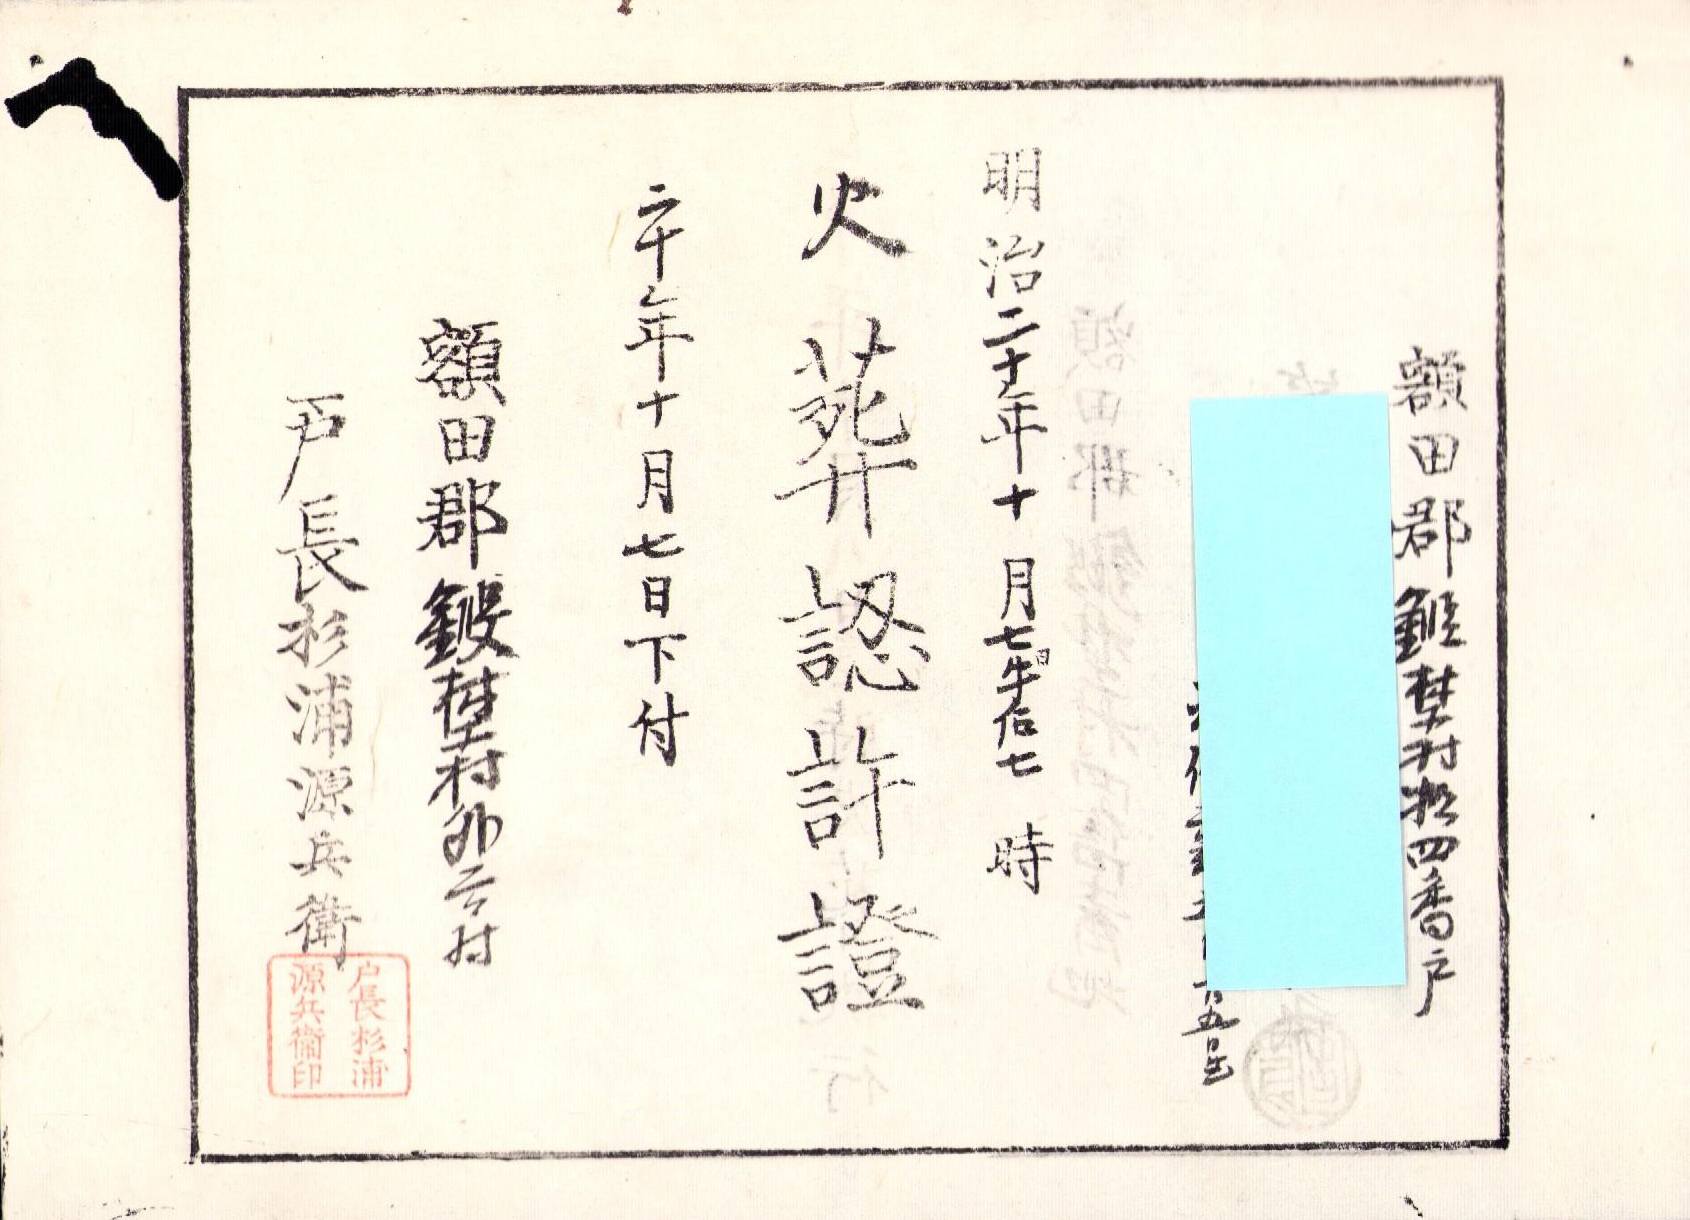 額田郡鍛埜村拾四番戸
五日生
明治二十年十月七日午后七時
火葬認許證
二十年十月七日下付
額田郡鍛埜村外二ケ村
戸長杉浦源兵衛
戸長杉浦
源兵衛印